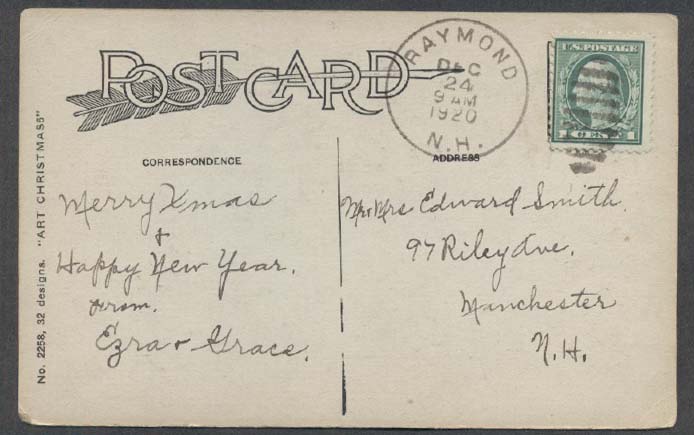 POST CARD
RAYMOND
DEC
24
9 AM
1920
N.H.
U.S. POSTAGE
1 CENT 1
CORRESPONDENCE
ADDRESS
Merry Xmas
&
Happy New Year.
From.
Ezra & Grace.
Mr & Mrs Edward Smith.
97 Riley Ave.
Manchester
N.H.
No. 2258, 32 designs. "ART CHRISTMAS5"